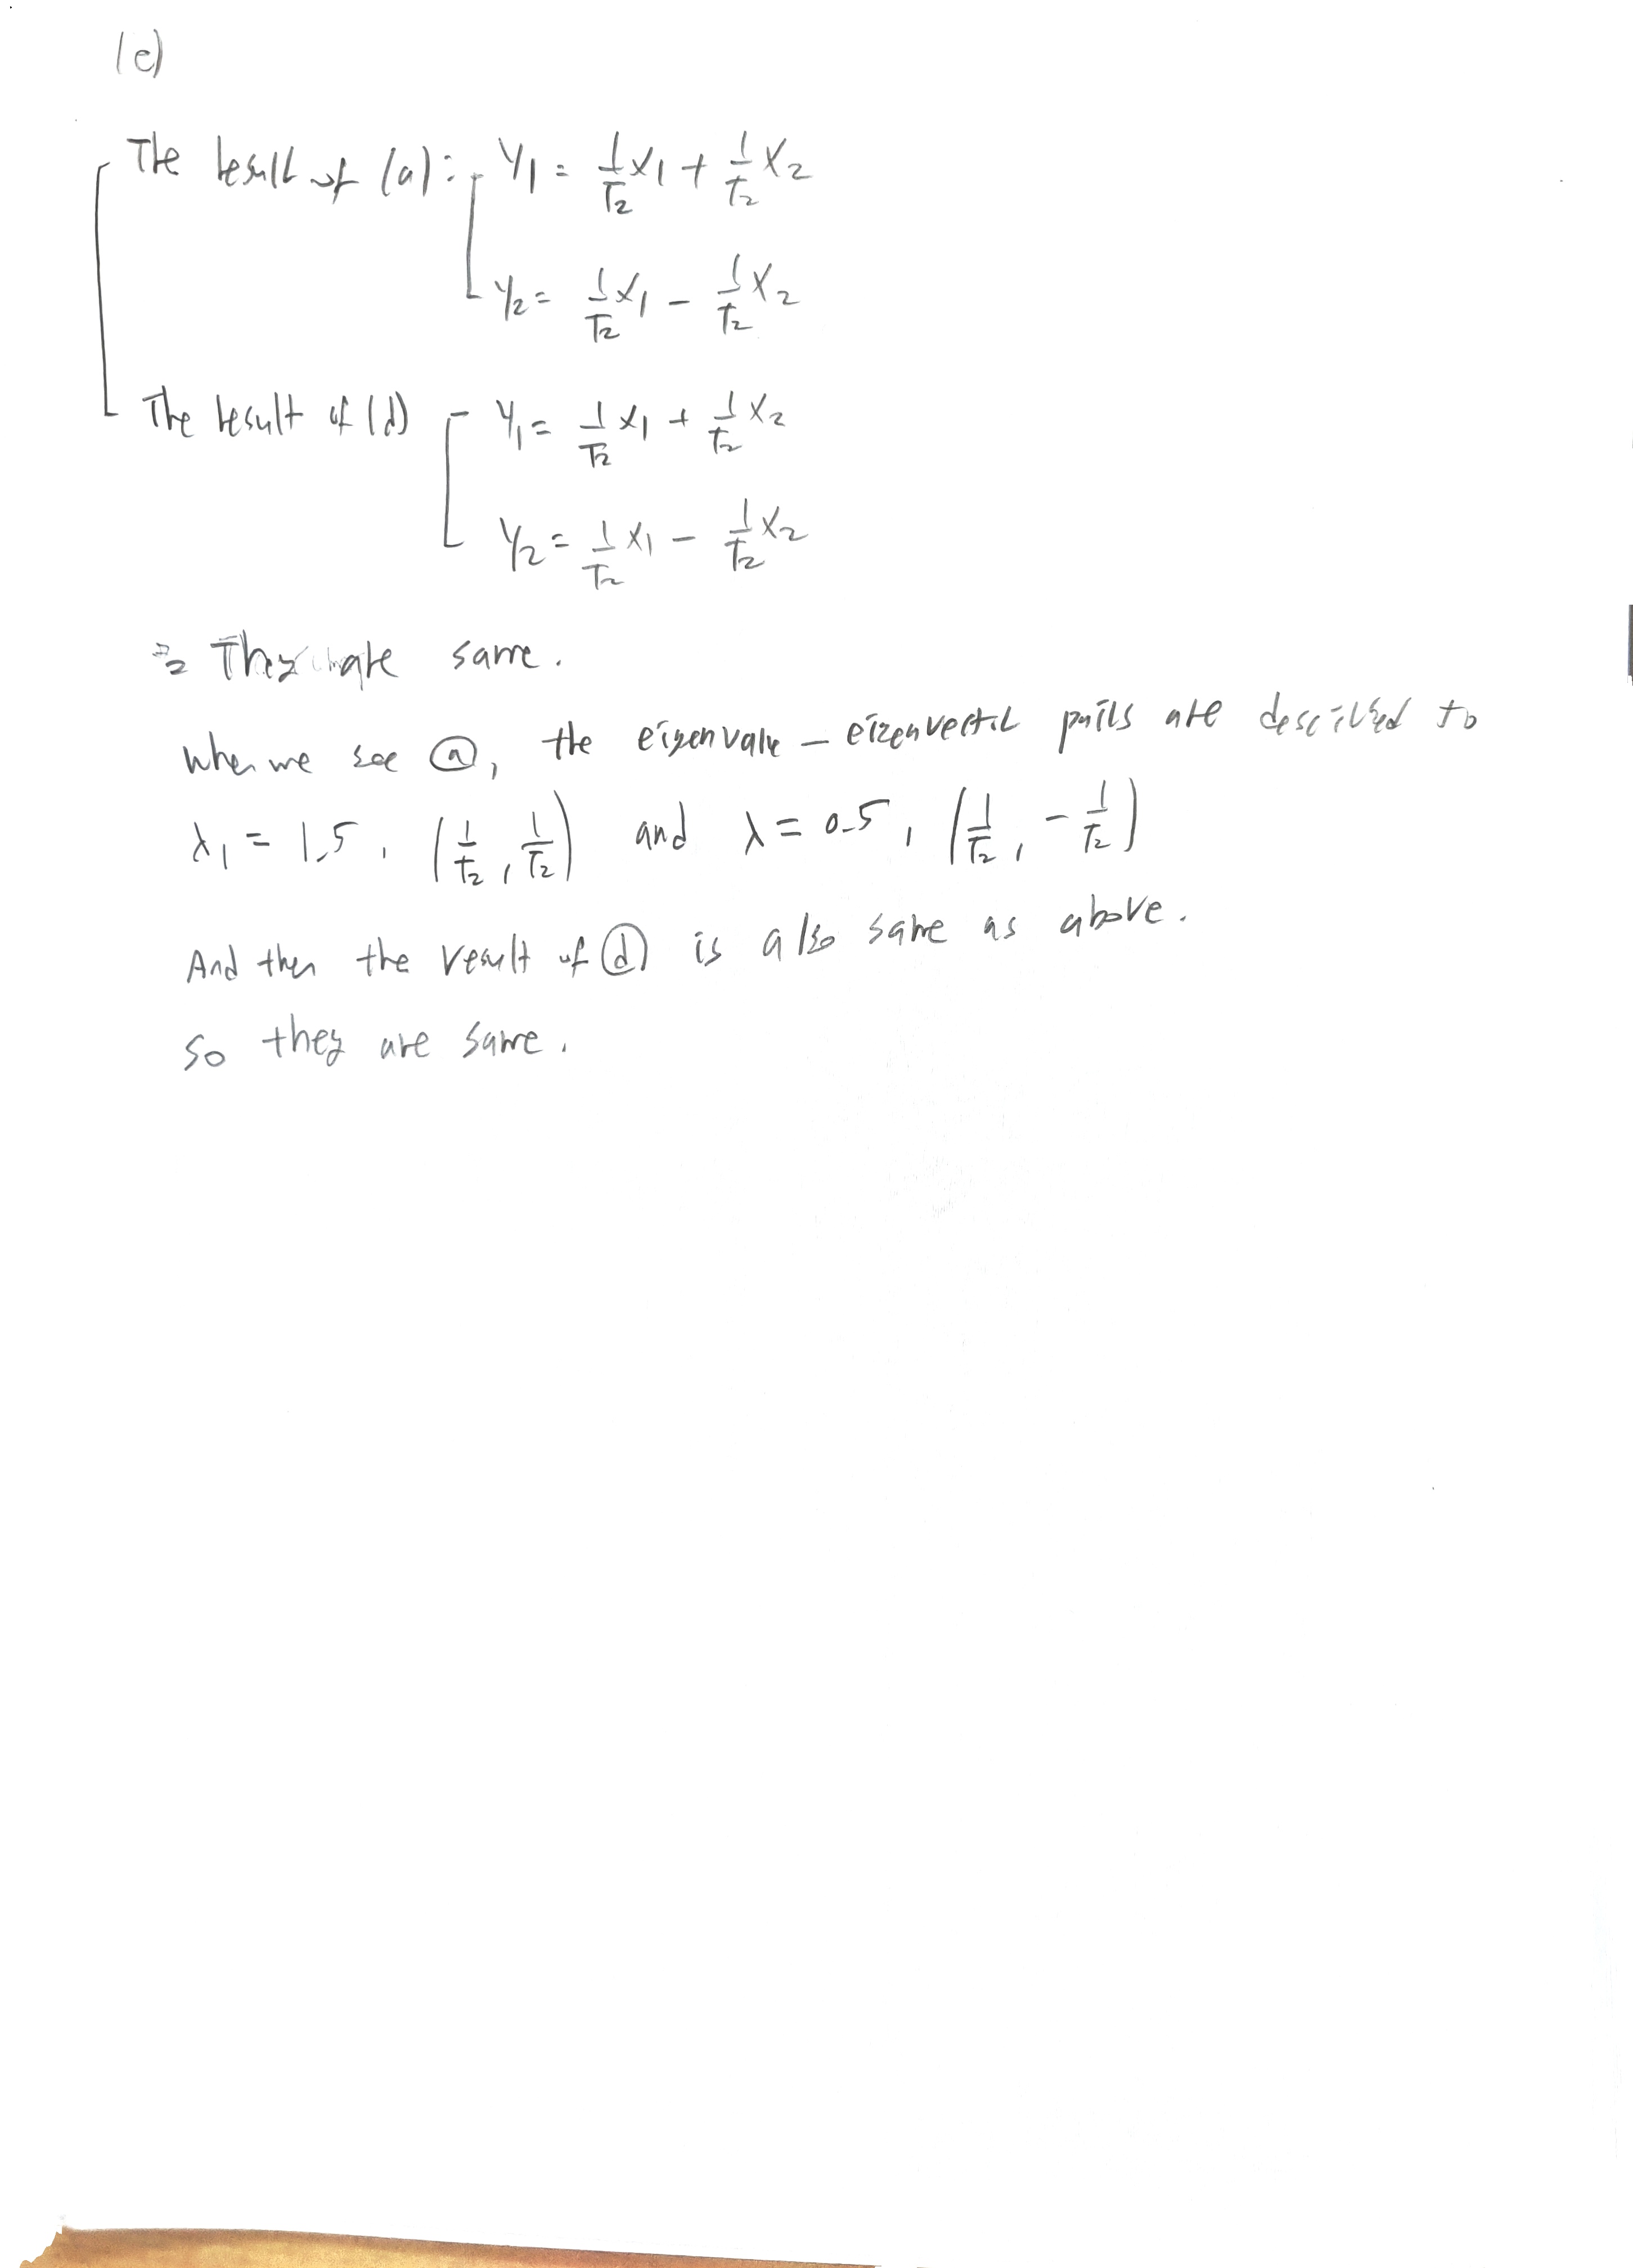 (e)
The result of (a): Y1 = 1/√2 X1 + 1/√2 X2
Y2 = 1/√2 X1 - 1/√2 X2
The result of (d) Y1 = 1/√2 X1 + 1/√2 X2
Y2 = 1/√2 X1 - 1/√2 X2
They are same.
When we see ⓐ, the eigenvalue - eigenvector pairs are described to
λ1 = 1.5, (1/√2, 1/√2) and λ = 0.5, (1/√2, -1/√2)
And then the result of ⓓ is also same as above.
So they are same.